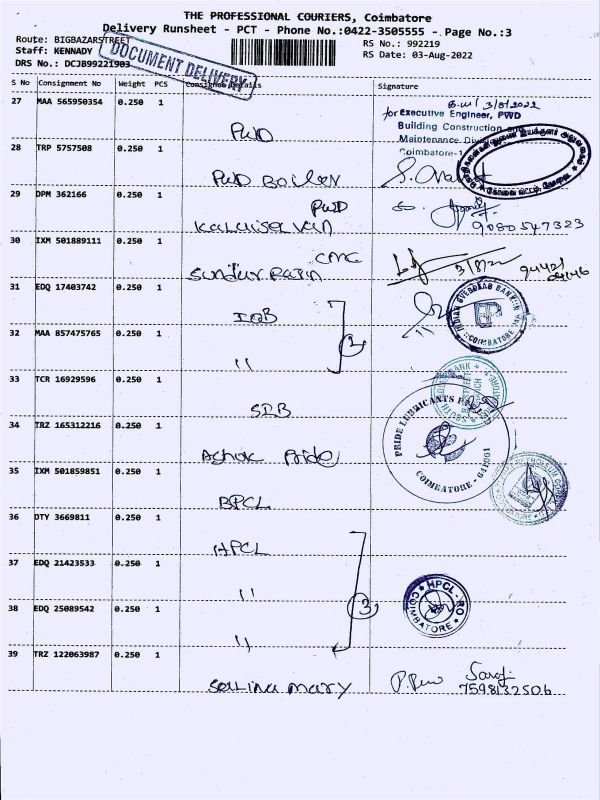 THE PROFESSIONAL COURIERS, Coimbatore
Delivery Runsheet - PCT - Phone No.:0422-3505555 - Page No.:3
Route: BIGBAZARSTREET
RS No.: 992219
Staff: KENNADY
RS Date: 03-Aug-2022
DRS No.: DCJB99221903
DOCUMENT DELIVERY
S No Consignment No Weight PCS Consignee Details Signature
27 MAA 565950354 0.250 1
PWD
3/8/2022
for Executive Engineer, PWD
Building Construction and
Maintenance
Coimbatore-1
28 TRP 5757508 0.250 1
PWD Boiler
29 DPM 362166 0.250 1
PWD
Kalaiselvan
9080547323
30 IXM 501889111 0.250 1
CMC
Sundur Rajin
3/8/22
31 EDQ 17403742 0.250 1
IOB
INDIAN OVERSEAS BANK
COIMBATORE
32 MAA 857475765 0.250 1
"
2
33 TCR 16929596 0.250 1
SIB
34 TRZ 165312216 0.250 1
Ashok Pride
PRIDE LUBRICANTS
COIMBATORE - 641001
35 IXM 501859851 0.250 1
BPCL
36 DTY 3669811 0.250 1
HPCL
37 EDQ 21423533 0.250 1
"
3
38 EDQ 25089542 0.250 1
"
HPCL-RO
COIMBATORE
39 TRZ 122063987 0.250 1
Sellina mary
7598132506